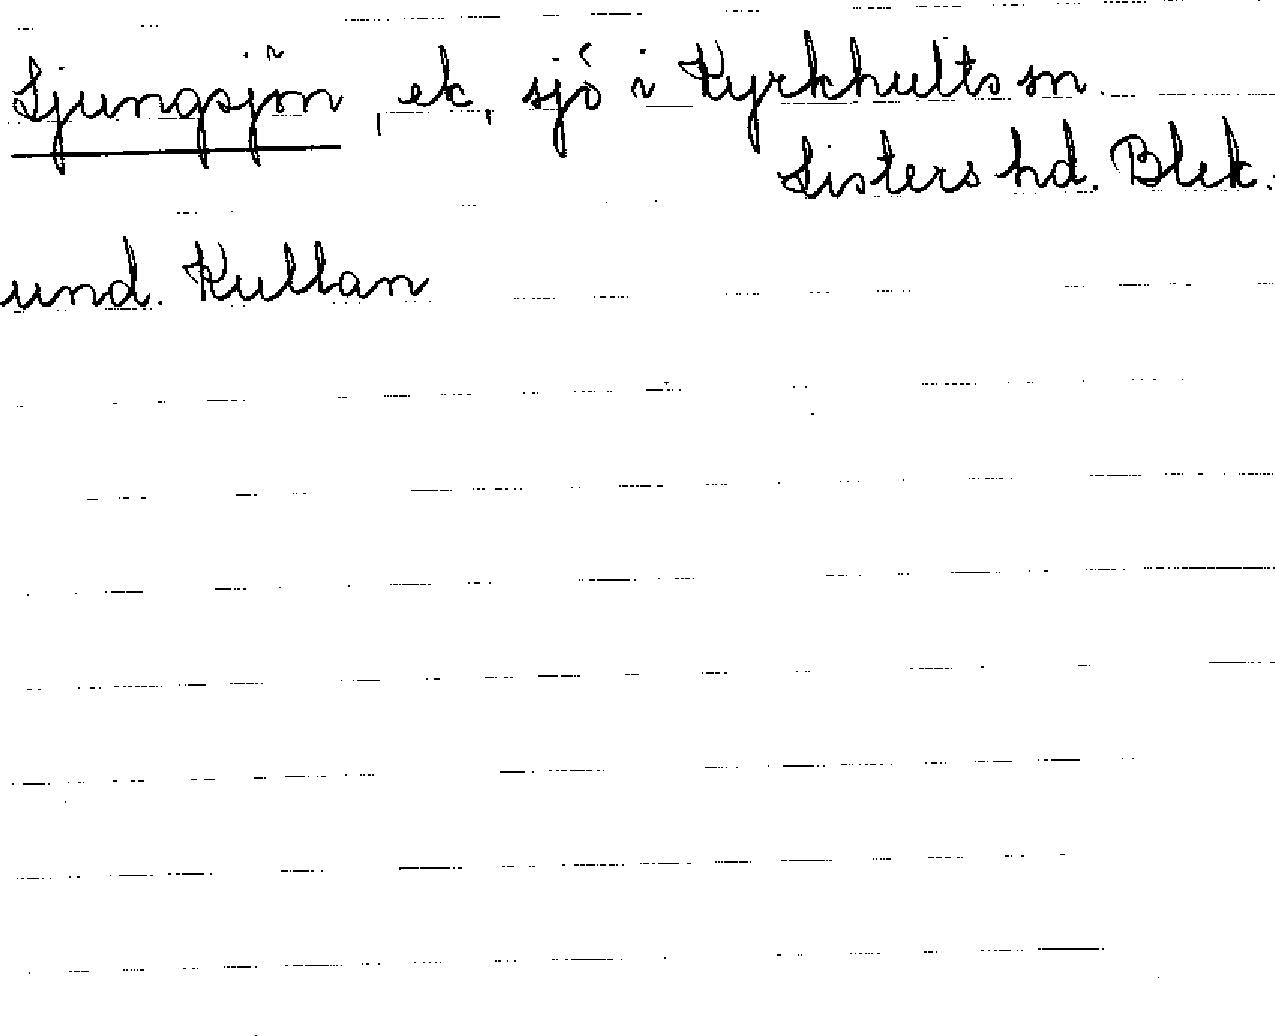 Ljungsjön, ek, sjö i Kyrkhults sn.
Listers hd. Blek.
und. Kullan